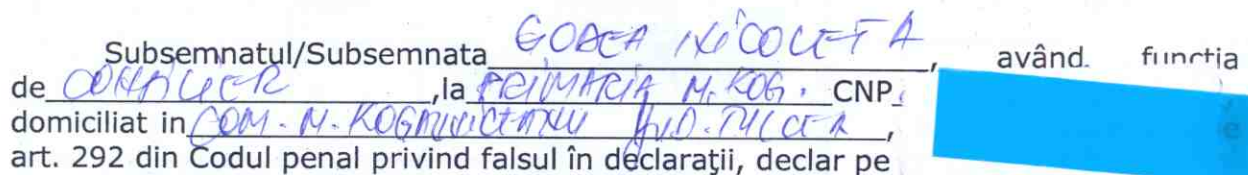 Subsemnatul/Subsemnata GODEA NICOLETA, având funcția
de CONSILIER, la PRIMARIA M. KOG. CNP
domiciliat in COM. M. KOGALNICEANU JUD. TULCEA,
art. 292 din Codul penal privind falsul în declaraţii, declar pe